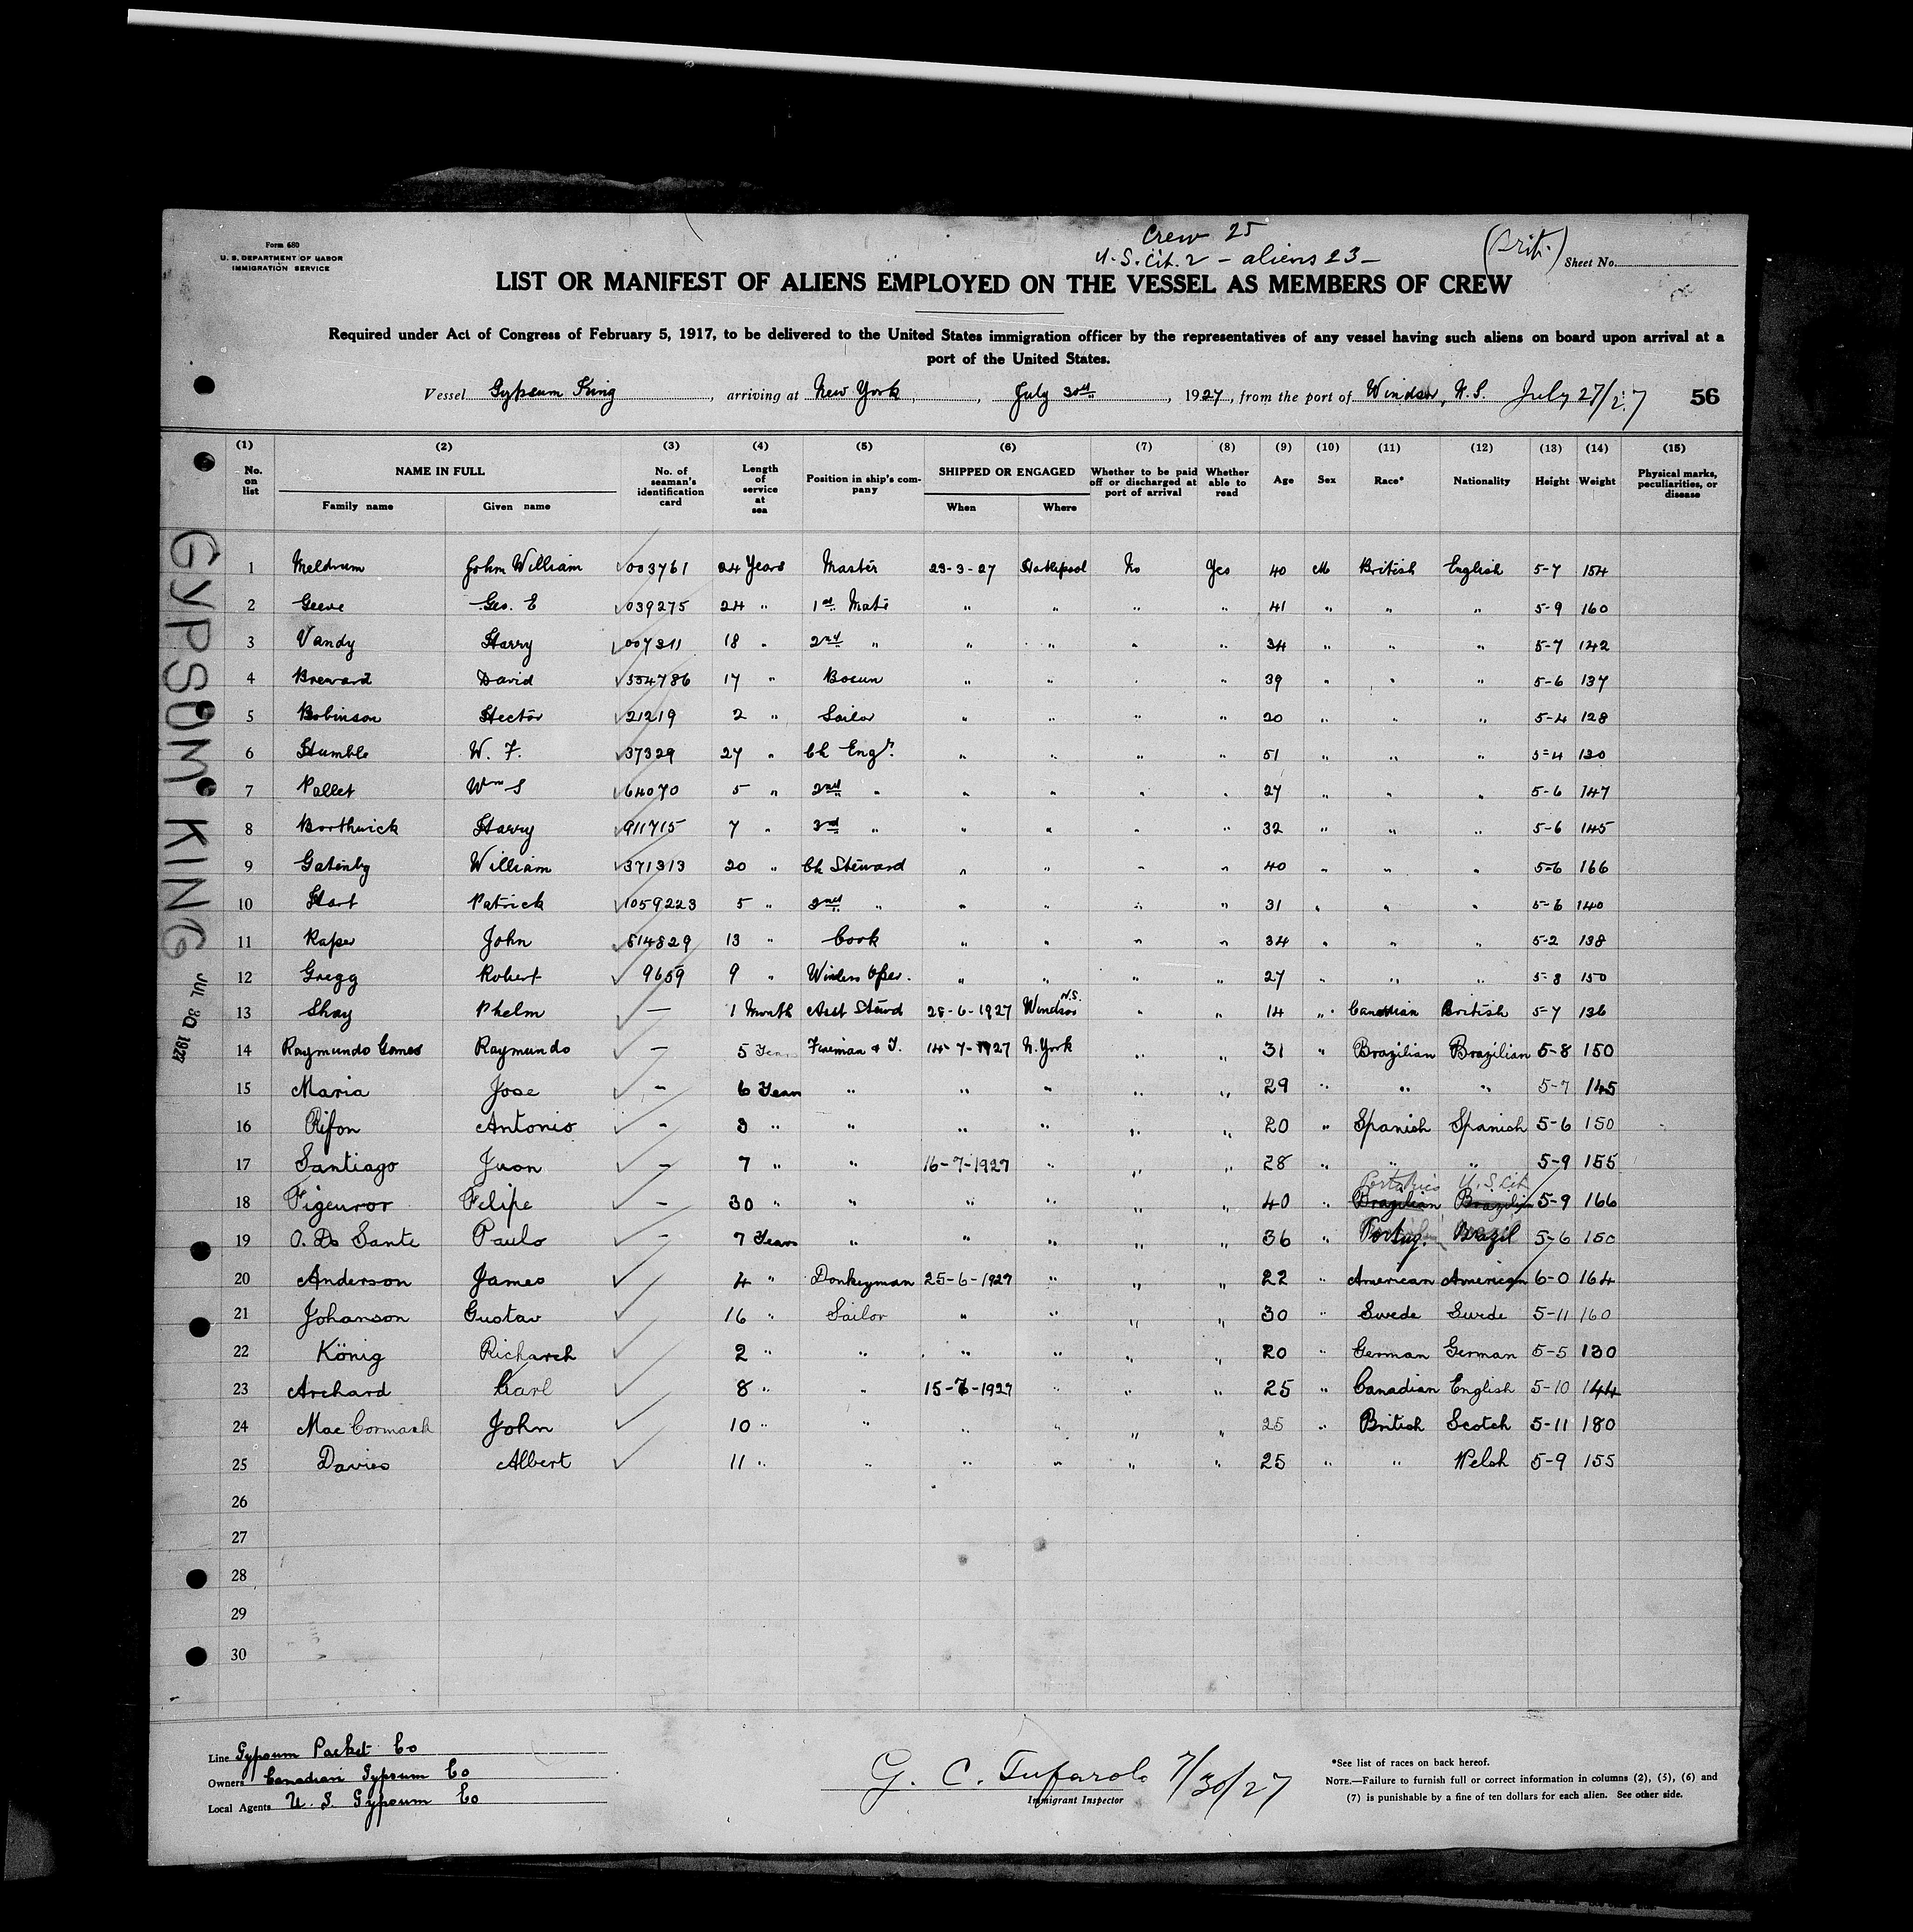 Form 680
U. S. DEPARTMENT OF LABOR
IMMIGRATION SERVICE
Crew 25
U.S. Cit. 2 - aliens 23 -
(Brit.)
Sheet No.
LIST OR MANIFEST OF ALIENS EMPLOYED ON THE VESSEL AS MEMBERS OF CREW
Required under Act of Congress of February 5, 1917, to be delivered to the United States immigration officer by the representatives of any vessel having such aliens on board upon arrival at a
port of the United States.
Vessel Gypsum King, arriving at New York, July 30th, 1927, from the port of Windsor, N.S. July 27/27 56
(1) (2) (3) (4) (5) (6) (7) (8) (9) (10) (11) (12) (13) (14) (15)
No. on list NAME IN FULL Family name Given name No. of seaman's identification card Length of service at sea Position in ship's company SHIPPED OR ENGAGED When Where Whether to be paid off or discharged at port of arrival Whether able to read Age Sex Race* Nationality Height Weight Physical marks, peculiarities, or disease
1 Meldrum John William 003761 24 Years Master 23-3-27 Hartlepool No Yes 40 M British English 5-7 154
2 Geeve Geo. E 039275 24 " 1st Mate " " " " 41 " " " 5-9 160
3 Vandy Harry 007311 18 " 2nd " " " " " 34 " " " 5-7 142
4 Breward David 17 " Bosun " " " " 39 " " " 5-6 137
5 Robinson Hector 21219 2 " Sailor " " " " 20 " " " 5-4 128
6 Humble W. F. 37329 27 " Ch Engr. " " " " 51 " " " 5-4 130
7 Pallet Wm S 64070 5 " 2nd " " " " " 27 " " " 5-6 147
8 Borthwick Harry 911715 7 " 3rd " " " " " 32 " " " 5-6 145
9 Gatenby William 371313 20 " Ch Steward " " " " 40 " " " 5-6 166
10 Hart Patrick 1059223 5 " 2nd " " " " " 31 " " " 5-6 140
11 Raper John 514829 13 " Cook " " " " 34 " " " 5-2 138
12 Gregg Robert 9659 9 " Wireless Oper. " " " " 27 " " " 5-8 150
13 Shay Phelm — 1 Month Asst Stewd 28-6-1927 Windsor N.S. " " 14 " Canadian British 5-7 136
14 Raymundo Gomes Raymundo — 5 Years Fireman & T. 14-7-1927 N. York " " 31 " Brazilian Brazilian 5-8 150
15 Maria Jose - 6 Years " " " " " 29 " " " 5-7 145
16 Rifon Antonio - 3 " " " " " " 20 " Spanish Spanish 5-6 150
17 Santiago Juan - 7 " " 16-7-1927 " " " 28 " " " 5-9 155
Porto Rico U.S. Cit.
18 Figeuror Felipe - 30 " " " " " " 40 " Brazilian Brazilian 5-9 166
19 O. Do Sante Paulo - 7 Years " " " " " 36 " Portug. Brazil 5-6 150
20 Anderson James 4 " Donkeyman 25-6-1927 " " " 22 " American American 6-0 164
21 Johanson Gustav 16 " Sailor " " " " 30 " Swede Swede 5-11 160
22 König Richarch 2 " " " " " " 20 " German German 5-5 130
23 Archard Carl 8 " " 15-7-1927 " " " 25 " Canadian English 5-10 144
24 Mac Cormack John 10 " " " " " " 25 " British Scotch 5-11 180
25 Davies Albert 11 " " " " " " 25 " " Welsh 5-9 155
26
27
28
29
30
GYPSUM KING
JUL 30 1927
Line Gypsum Packet Co
Owners Canadian Gypsum Co
Local Agents U. S. Gypsum Co
G. C. Tufarolo 7/30/27
Immigrant Inspector
*See list of races on back hereof.
NOTE.—Failure to furnish full or correct information in columns (2), (5), (6) and
(7) is punishable by a fine of ten dollars for each alien. See other side.